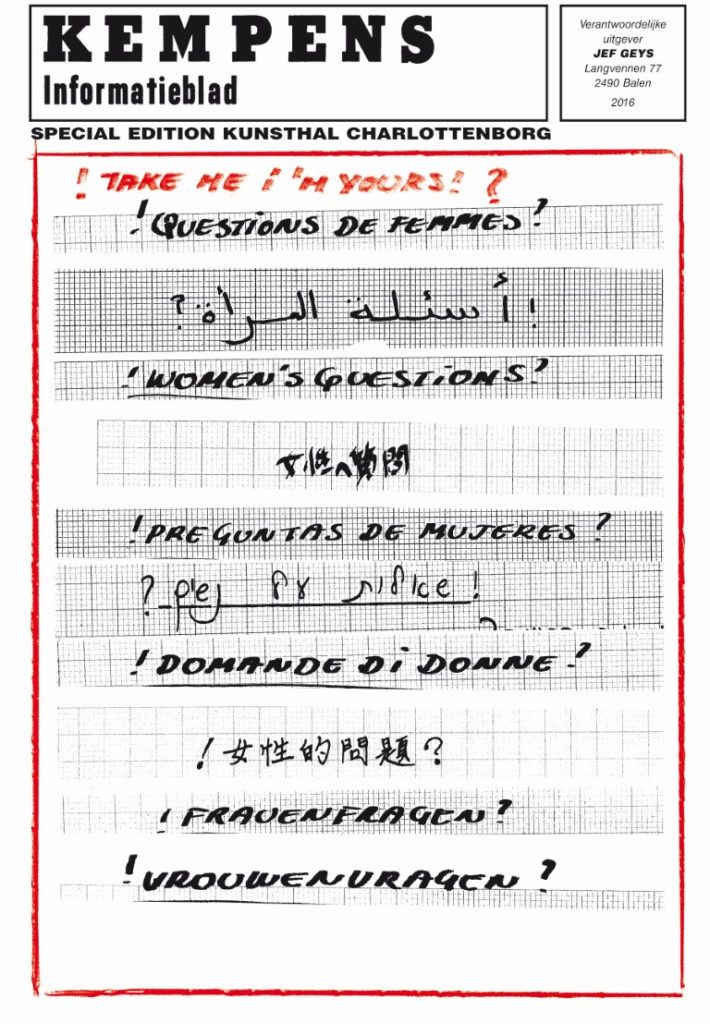 KEMPENS
Informatieblad
Verantwoordelijke
uitgever
JEF GEYS
Langvennen 77
2490 Balen
2016
SPECIAL EDITION KUNSTHAL CHARLOTTENBORG
! TAKE ME i 'M YOURS! ?
! QUESTIONS DE FEMMES ?
! أسئلة المرأة ?
! WOMEN'S QUESTIONS ?
女性へ質問
! PREGUNTAS DE MUJERES ?
! שאלות של נשים ?
! DOMANDE Di DONNE ?
! 女性的問題 ?
! FRAUENFRAGEN ?
! VROUWENVRAGEN ?